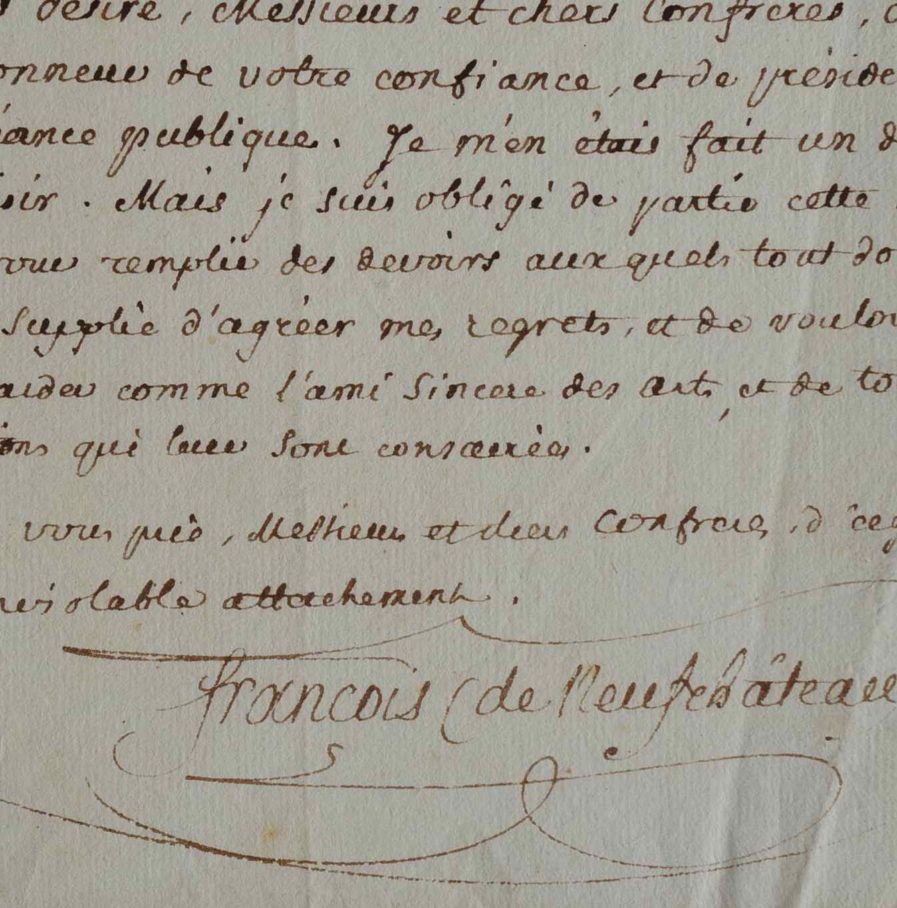 desiré, Messieurs et chers Confreres,
onneur de votre confiance, et de préside
éance publique. Je m'en étais fait un d
isir. Mais je suis obligé de partir cette
vous remplir des devoirs auxquels tout do
supplie d'agréer mes regrets, et de vouloi
aider comme l'ami sincere des arts, et de to
ions qui leur sont consacrées.
vous prie, Messieurs et chers Confreres, d'
olable attachement.
françois (de Neufchâteau